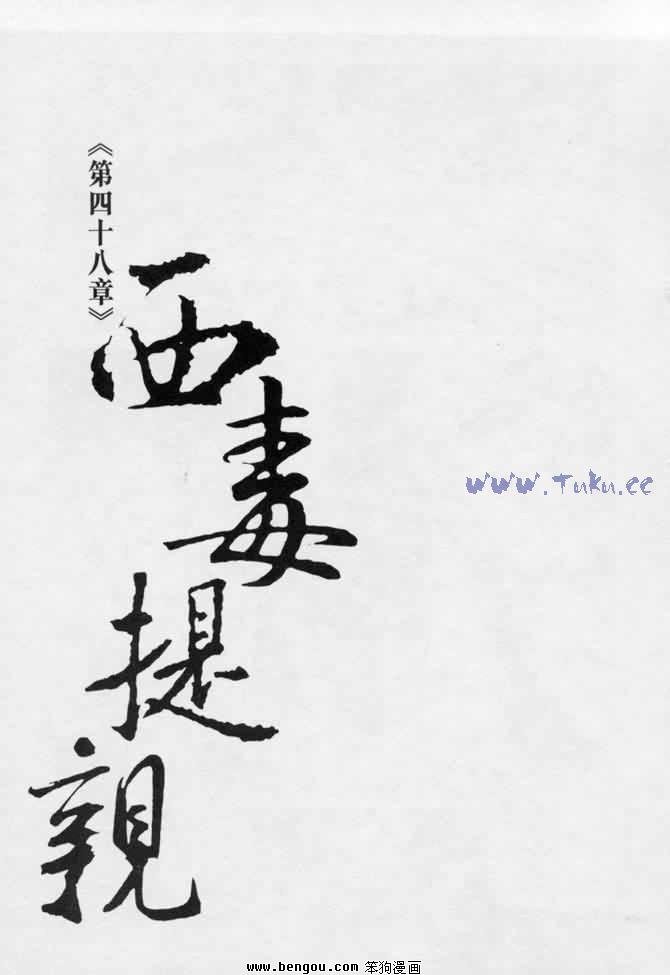 《第四十八章》
西毒提親
www.Tuku.cc
www.bengou.com 笨狗漫画